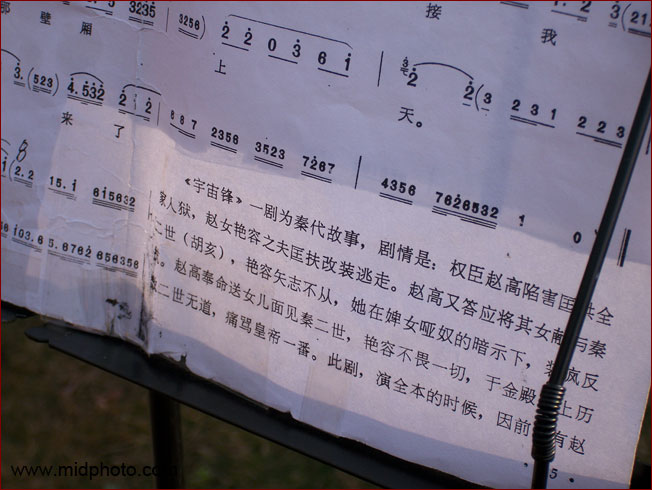 那 壁 厢 3235 3256) 2 2 0 3 6 1 接 我 1·2 3 (21
上 天。
3. (523) 4.532 2 1 2 2 (3 2 3 1 2 2 3
来 了 6 6 7 2356 3523 7267 4356 7626532 1 0
(2.2 15.1 615632
103.6 5.6762 656356
《宇宙锋》一剧为秦代故事，剧情是：权臣赵高陷害匡洪全
家入狱，赵女艳容之夫匡扶改装逃走。赵高又答应将其女献与秦
二世（胡亥），艳容矢志不从，她在婢女哑奴的暗示下，装疯反
。赵高奉命送女儿面见秦二世，艳容不畏一切，于金殿 上历
二世无道，痛骂皇帝一番。此剧，演全本的时候，因前 有赵
5
www.midphoto.com